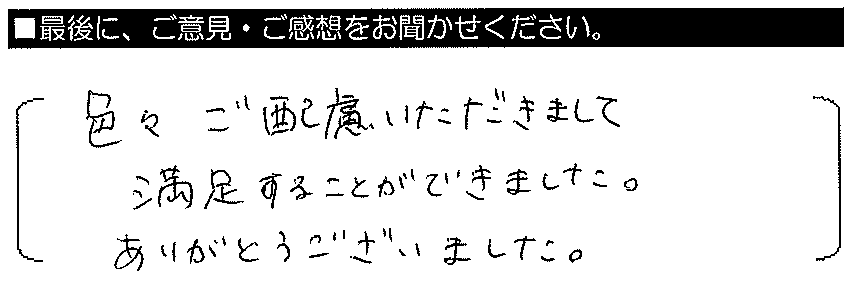 ■最後に、ご意見・ご感想をお聞かせください。
色々 ご配慮いただきまして
満足することができました。
ありがとうございました。